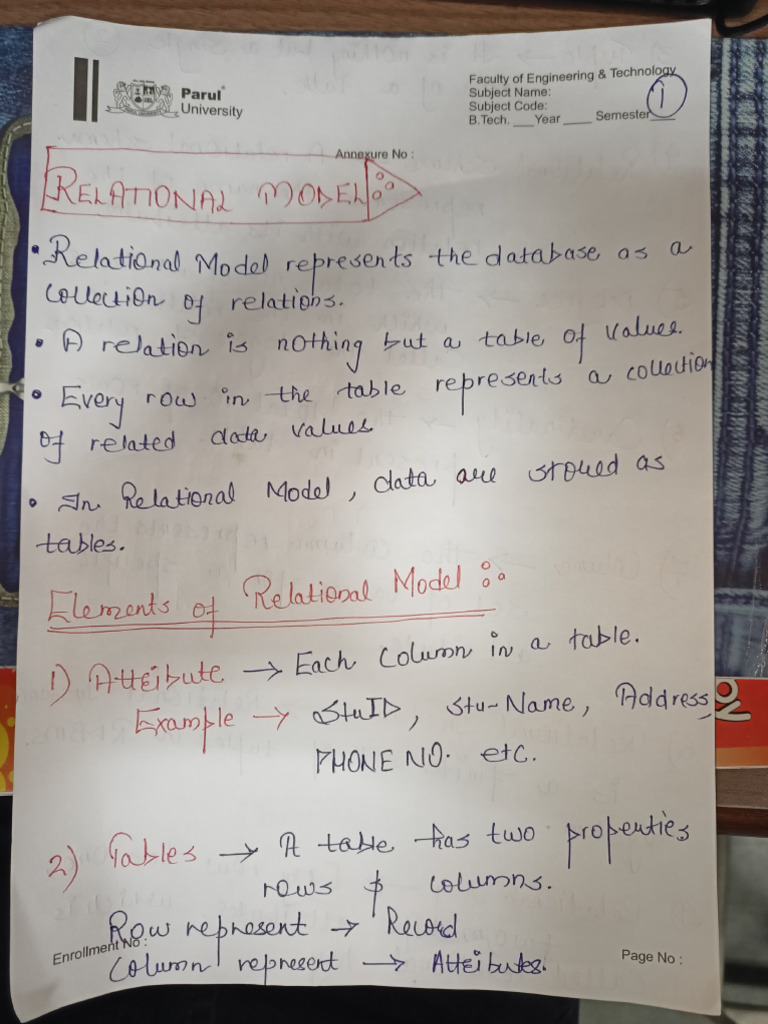 Parul®
University
Faculty of Engineering & Technology
Subject Name:
Subject Code:
B.Tech. ___Year ____ Semester____
1
Annexure No :
RELATIONAL MODEL:
• Relational Model represents the database as a
collection of relations.
• A relation is nothing but a table of values.
• Every row in the table represents a collection
of related data values
• In Relational Model, data are stored as
tables.
Elements of Relational Model :
1) Attribute → Each column in a table.
Example → StuID, Stu-Name, Address,
PHONE NO. etc.
2) Tables → A table has two properties
rows & columns.
Row represent → Record
Enrollment No :
Column represent → Attributes.
Page No :